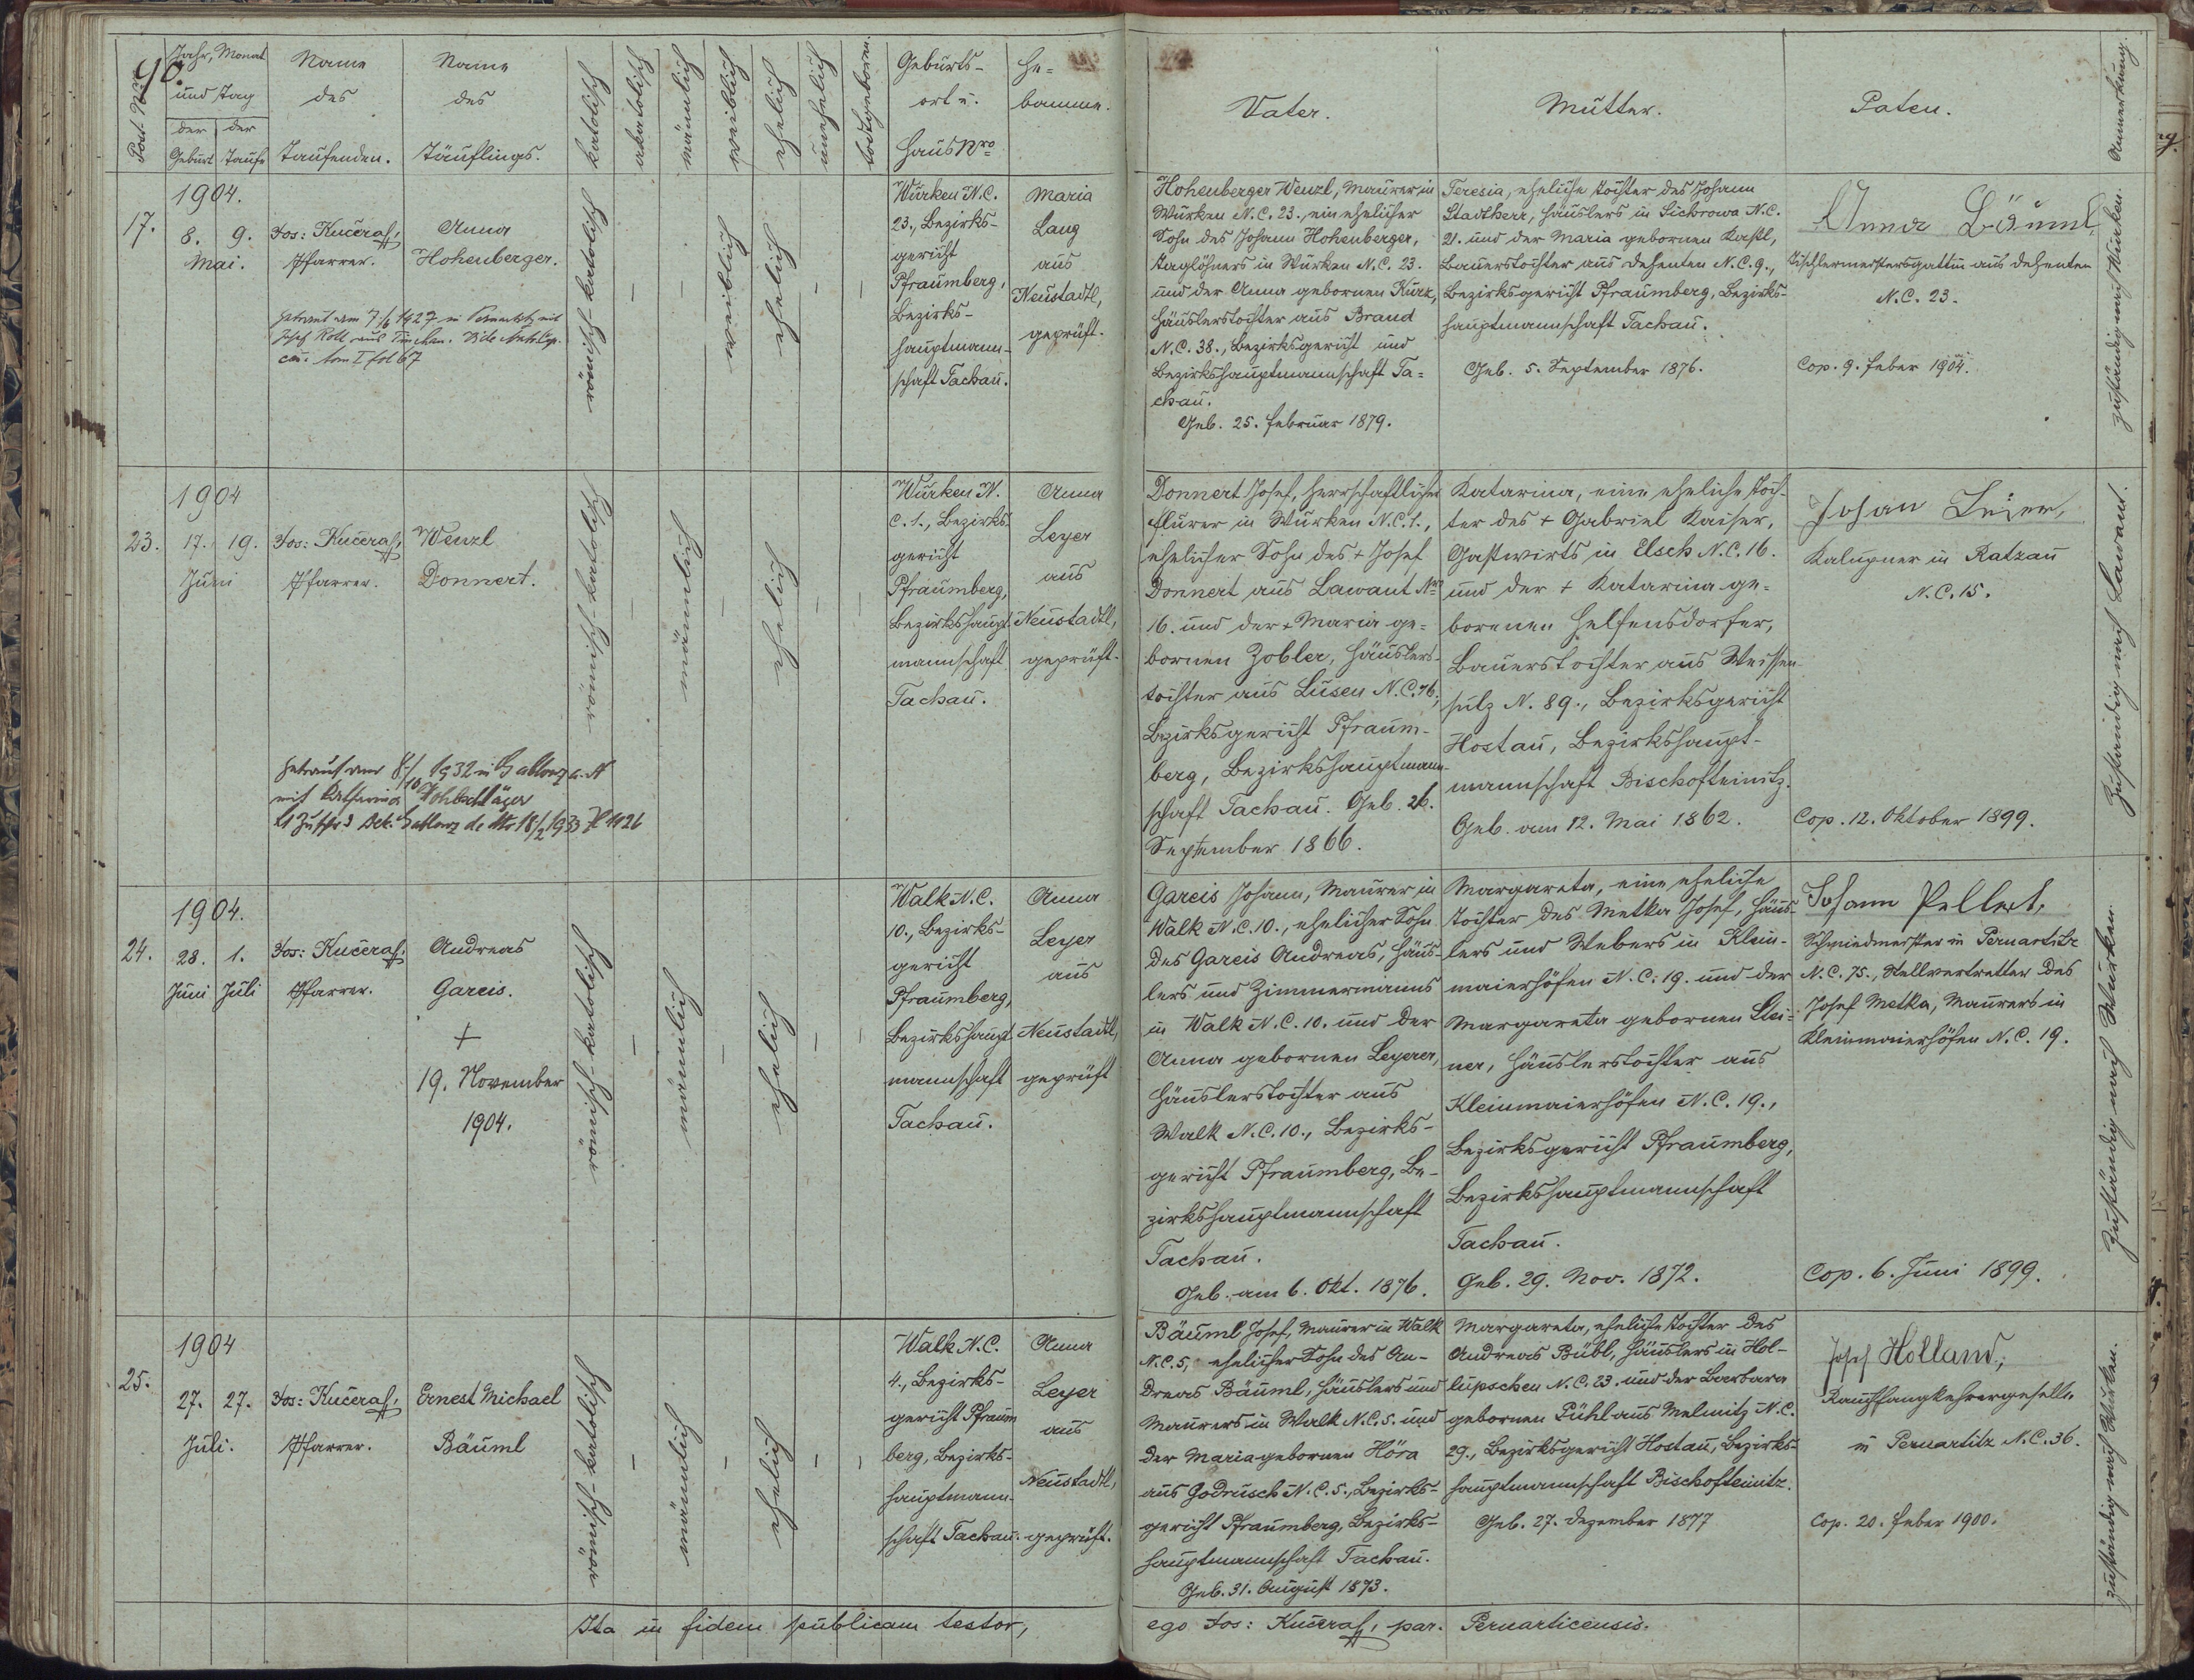 90.
Post-Nro
Jahr, Monat
und Tag
der Geburt
der Taufe
Name
des
Taufenden.
Name
des
Täuflings.
katolisch
akatolisch
männlich
weiblich
ehelich
unehelich
todtgeboren.
Geburts-
ort u.
Haus Nro
He-
bamme.
Vater.
Mutter.
Paten.
Anmerkung.
17.
1904.
8. 9.
Mai.
Jos: Kučeraf,
Pfarrer.
Anna
Hohenberger.
Getraut am 7/6 1927 in Pernartitz mit
Josef Roll aus
tom I fol 67
römisch-katolisch
–
–
weiblich
ehelich
–
–
Wurken N.C.
23., Bezirks-
gericht
Pfraumberg,
Bezirks-
hauptmann-
schaft Tachau.
Maria
Lang
aus
Neustadtl,
geprüft.
Hohenberger Wenzl, Maurer in
Wurken N.C. 23., ein ehelicher
Sohn des Johann Hohenberger,
Taglöhners in Wurken N.C. 23.
und der Anna gebornen Kurz,
Häuslerstochter aus Brand
N.C. 38., Bezirksgericht und
Bezirkshauptmannschaft Ta-
chau.
Geb. 25. Februar 1879.
Teresia, eheliche Tochter des Johann
Stadtherr, Häuslers in Sichrowa N.C.
21. und der Maria gebornen Kastl,
Bauerstochter aus Dehenten N.C. 9.,
Bezirksgericht Pfraumberg, Bezirks-
hauptmannschaft Tachau.
Geb. 5. September 1876.
Anna Bäuml,
Tischlermeistersgattin aus Dehenten
N.C. 23.
Cop. 9. Feber 1904.
zuständig nach Wurken.
23.
1904
17. 19.
Juni
Jos: Kučeraf,
Pfarrer.
Wenzl
Donnert.
Getraut am 8/10 1932 in Gablonz a. N
mit Katharina Wohlschläger
Gablonz de dto 18/2 1933 Zl 1926
römisch-katolisch
–
männlich
–
ehelich
–
–
Wurken N.
C. 1., Bezirks-
gericht
Pfraumberg,
Bezirkshaupt-
mannschaft
Tachau.
Anna
Leyer
aus
Neustadtl,
geprüft.
Donnert Josef, herrschaftlicher
Flurer in Wurken N.C. 1.,
ehelicher Sohn des + Josef
Donnert aus Lawant Nro
16. und der + Maria ge-
bornen Zobler, Häuslers-
tochter aus Lusen N.C. 76.,
Bezirksgericht Pfraum-
berg, Bezirkshauptmann-
schaft Tachau. Geb. 26.
September 1866.
Katarina, eine eheliche Toch-
ter des + Gabriel Kaiser,
Gastwirts in Elsch N.C. 16.
und der + Katarina ge-
borenen Helfensdorfer,
Bauerstochter aus Weissen-
sulz N. 89., Bezirksgericht
Hostau, Bezirkshaupt-
mannschaft Bischofteinitz.
Geb. am 12. Mai 1862.
Johan Leier,
Kalupner in Ratzau
N.C. 15.
Cop. 12. Oktober 1899.
Zuständig nach Lawant.
24.
1904.
28. 1.
Juni Juli
Jos: Kučeraf,
Pfarrer.
Andreas
Gareis.
+
19. November
1904.
römisch-katolisch
–
männlich
–
ehelich
–
–
Walk N.C.
10., Bezirks-
gericht
Pfraumberg,
Bezirkshaupt-
mannschaft
Tachau.
Anna
Leyer
aus
Neustadtl,
geprüft
Gareis Johann, Maurer in
Walk N.C. 10., ehelicher Sohn
des Gareis Andreas, Häus-
lers und Zimmermanns
in Walk N.C. 10. und der
Anna gebornen Leyerer,
Häuslerstochter aus
Walk N.C. 10., Bezirks-
gericht Pfraumberg, Be-
zirkshauptmannschaft
Tachau.
Geb. am 6. Okt. 1876.
Margareta, eine eheliche
Tochter des Metka Josef, Häus-
lers und Webers in Klein-
maierhöfen N.C. 19. und der
Margareta gebornen Stei-
ner, Häuslerstochter aus
Kleinmaierhöfen N.C. 19.,
Bezirksgericht Pfraumberg,
Bezirkshauptmannschaft
Tachau.
Geb. 29. Nov. 1872.
Johann Pellert,
Schmiedmeister in Pernartitz
N.C. 75., Stellvertretter des
Josef Metka, Maurers in
Kleinmaierhöfen N.C. 19.
Cop. 6. Juni 1899.
Zuständig nach Wurken.
25.
1904
27. 27.
Juli.
Jos: Kučeraf,
Pfarrer.
Ernest Michael
Bäuml
römisch-katolisch
–
männlich
–
ehelich
–
–
Walk N.C.
4., Bezirks-
gericht Pfraum
berg, Bezirks-
hauptmann-
schaft Tachau.
Anna
Leyer
aus
Neustadtl,
geprüft.
Bäuml Josef, Maurer in Walk
N.C. 5, ehelicher Sohn des An-
dreas Bäuml, Häuslers und
Maurers in Walk N.C. 5. und
der Maria gebornen Höra
aus Godrusch N.C. 5., Bezirks-
gericht Pfraumberg, Bezirks-
hauptmannschaft Tachau.
Geb. 31. August 1873.
Margareta, eheliche Tochter des
Andreas Bübl, Häuslers in Hol-
lupschen N.C. 23. und der Barbara
gebornen Pühl aus Melmitz N.C.
29., Bezirksgericht Hostau, Bezirks-
hauptmannschaft Bischofteinitz.
Geb. 27. Dezember 1877
Josef Holland,
Rauchfangkehrergeselle
in Pernartitz N.C. 36.
Cop. 20. Feber 1900.
zuständig nach Wurken.
Ita in fidem publicam testor,
ego Jos: Kučeraf, par. Pernarticensis.